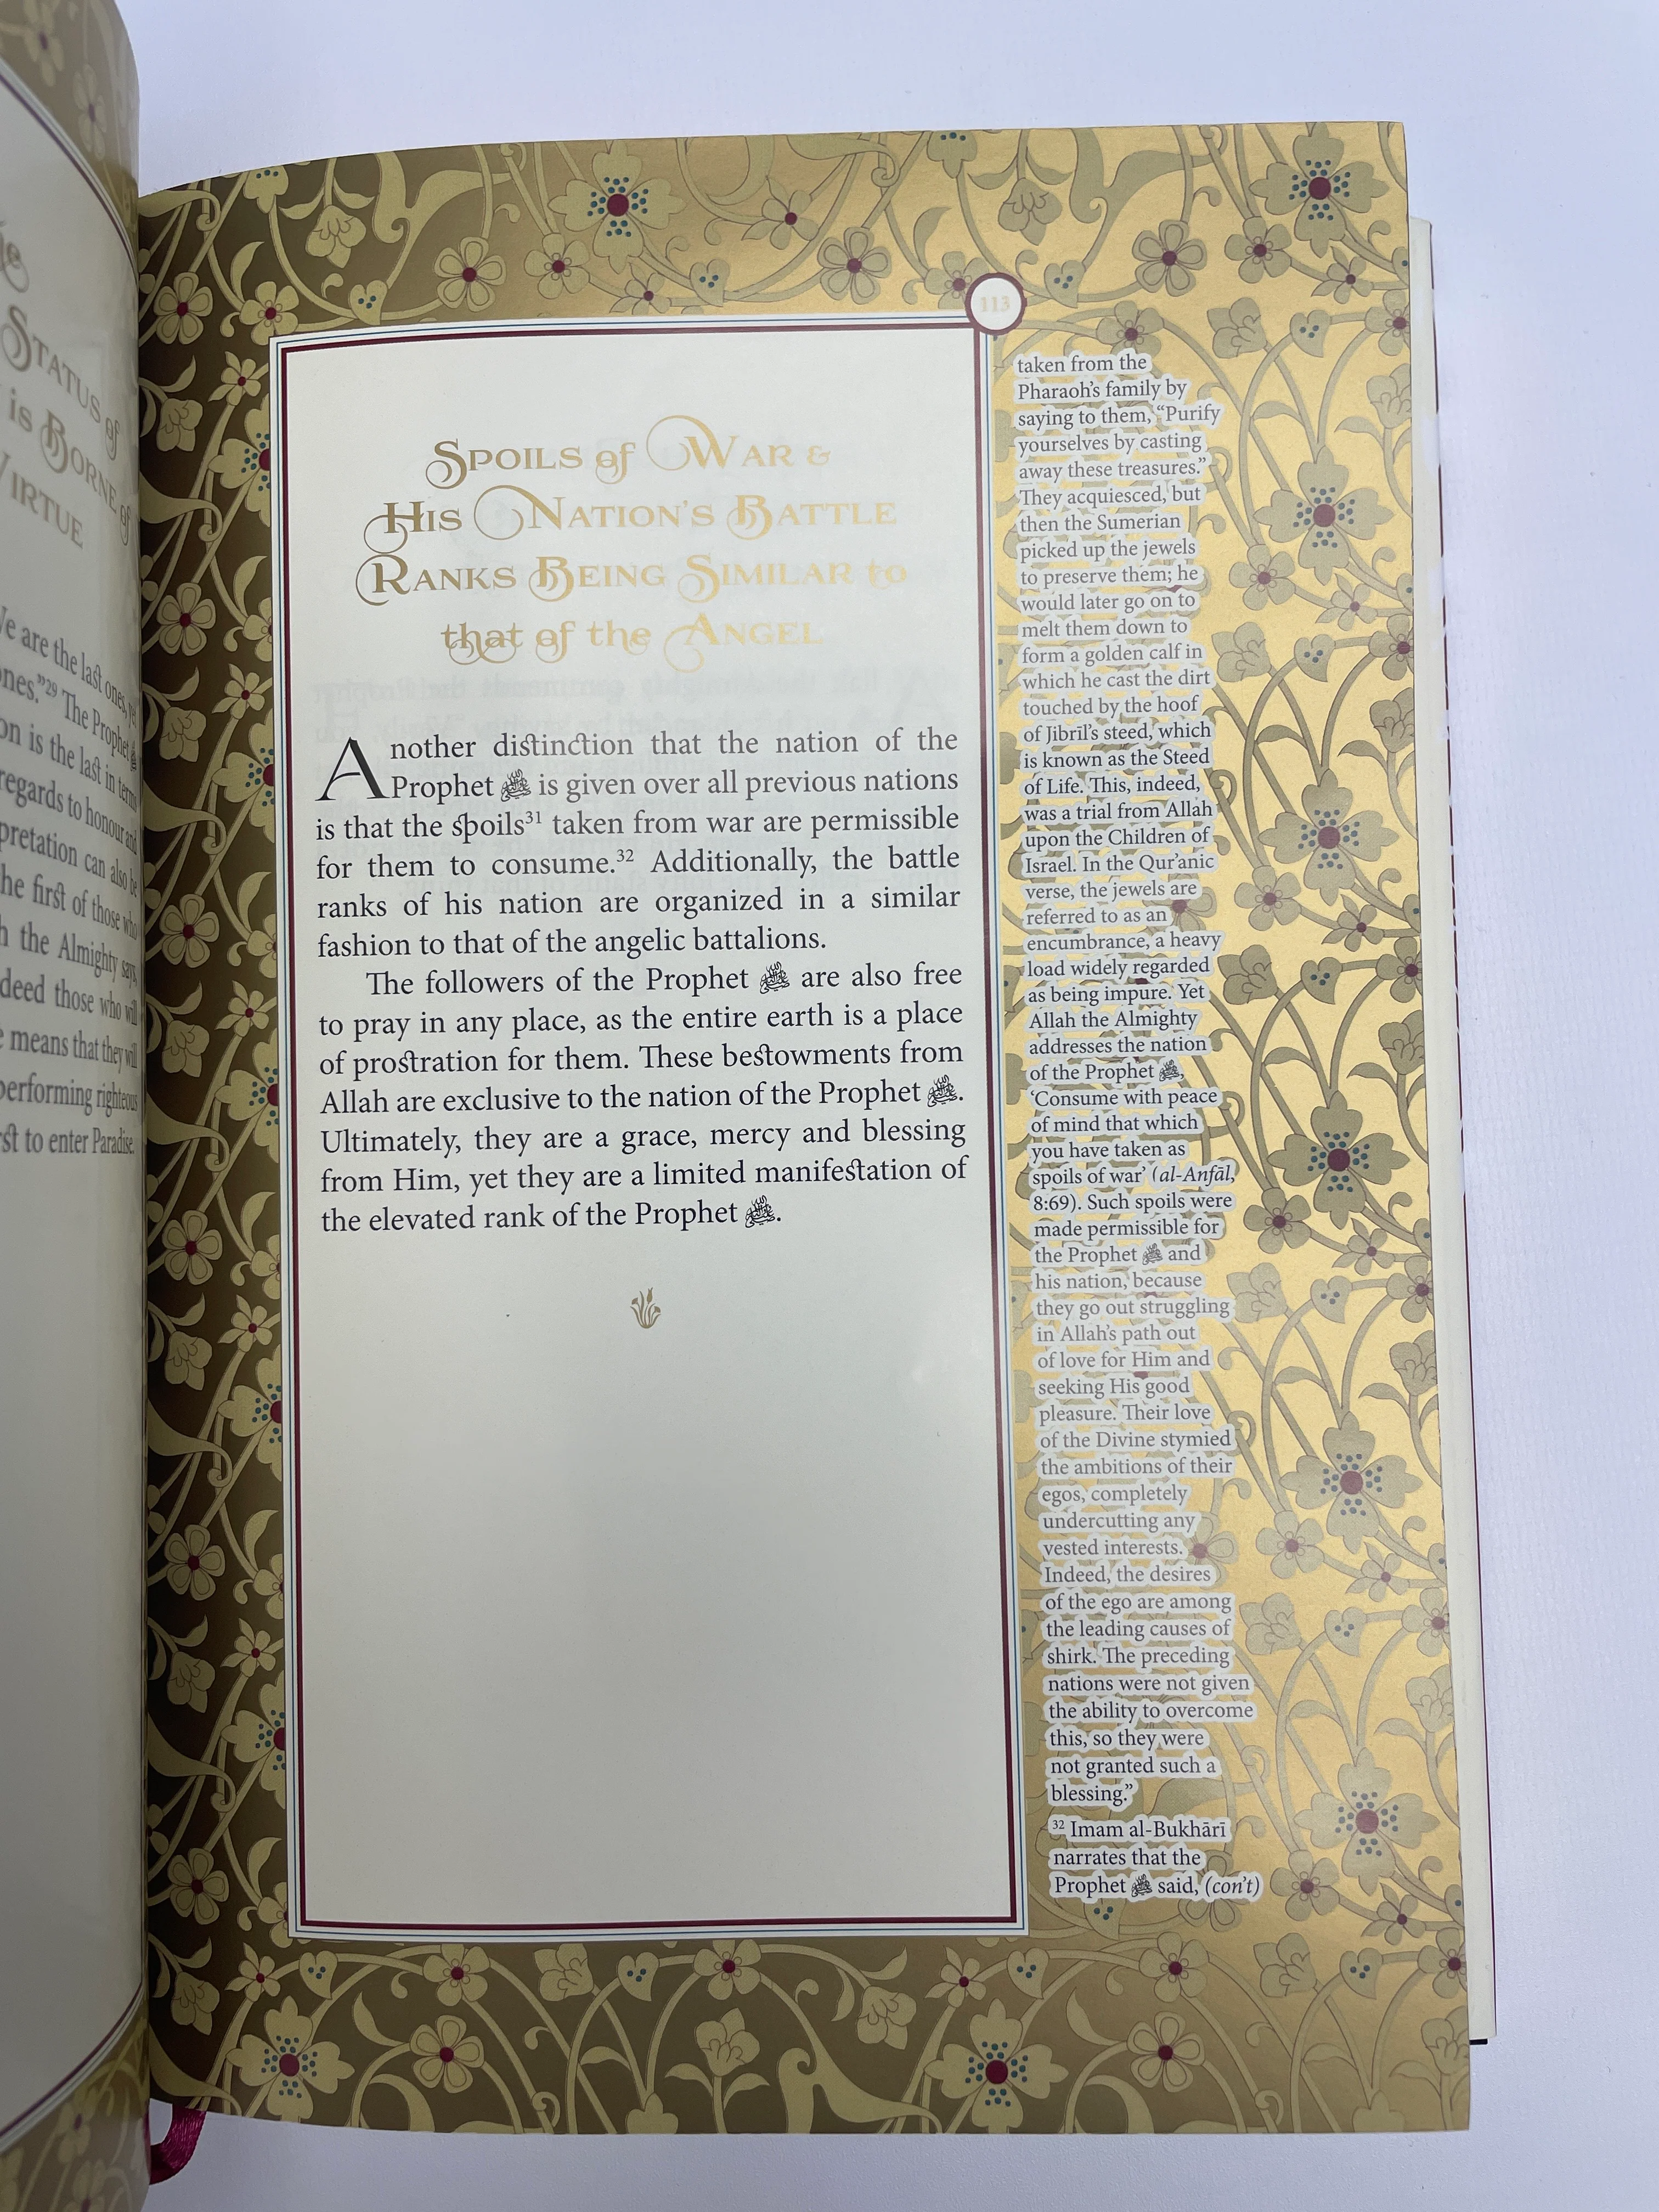 he
Status of
is Borne of
Virtue
We are the last ones, yet
ones.”²⁹ The Prophet ﷺ
on is the last in terms
regards to honour and
pretation can also be
he first of those who
h the Almighty says,
deed those who will
e means that they will
performing righteous
rst to enter Paradise.
113
Spoils of War &
His Nation’s Battle
Ranks Being Similar to
that of the Angel
Another distinction that the nation of the
Prophet ﷺ is given over all previous nations
is that the spoils³¹ taken from war are permissible
for them to consume.³² Additionally, the battle
ranks of his nation are organized in a similar
fashion to that of the angelic battalions.
The followers of the Prophet ﷺ are also free
to pray in any place, as the entire earth is a place
of prostration for them. These bestowments from
Allah are exclusive to the nation of the Prophet ﷺ.
Ultimately, they are a grace, mercy and blessing
from Him, yet they are a limited manifestation of
the elevated rank of the Prophet ﷺ.
taken from the
Pharaoh’s family by
saying to them, “Purify
yourselves by casting
away these treasures.”
They acquiesced, but
then the Sumerian
picked up the jewels
to preserve them; he
would later go on to
melt them down to
form a golden calf in
which he cast the dirt
touched by the hoof
of Jibrīl’s steed, which
is known as the Steed
of Life. This, indeed,
was a trial from Allah
upon the Children of
Israel. In the Qur’anic
verse, the jewels are
referred to as an
encumbrance, a heavy
load widely regarded
as being impure. Yet
Allah the Almighty
addresses the nation
of the Prophet ﷺ,
‘Consume with peace
of mind that which
you have taken as
spoils of war’ (al-Anfāl,
8:69). Such spoils were
made permissible for
the Prophet ﷺ and
his nation, because
they go out struggling
in Allah’s path out
of love for Him and
seeking His good
pleasure. Their love
of the Divine stymied
the ambitions of their
egos, completely
undercutting any
vested interests.
Indeed, the desires
of the ego are among
the leading causes of
shirk. The preceding
nations were not given
the ability to overcome
this, so they were
not granted such a
blessing.”
³² Imam al-Bukhārī
narrates that the
Prophet ﷺ said, (con’t)